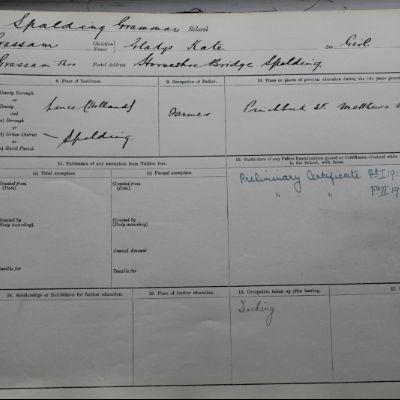 Spalding Grammar School
Grassam Christian Names Gladys Kate Girl
Grassam Thos Postal Address Horseshoe Bridge Spalding
8. Place of Residence. 9. Occupation of Father. 10. Place or places of previous education during the two years
County Borough
or
County Lincs (Holland) Farmer Pinchbeck St. Matthews
and
Urban District Spalding
or Rural Parish
11. Particulars of any exemption from Tuition fees. 12. Particulars of any Public Examinations passed
(a) Total exemption. (b) Partial exemption. in the School, with dates.
Granted from (Date). Granted from (Date). Preliminary Certificate Pt I
" " Pt II
Granted by (Body according). Granted by (Body according).
Annual Amount
Tenable for Tenable for
14. Scholarships or Exhibitions for further education. 15. Place of further education. 16. Occupation taken up after leaving. 17.
Teaching